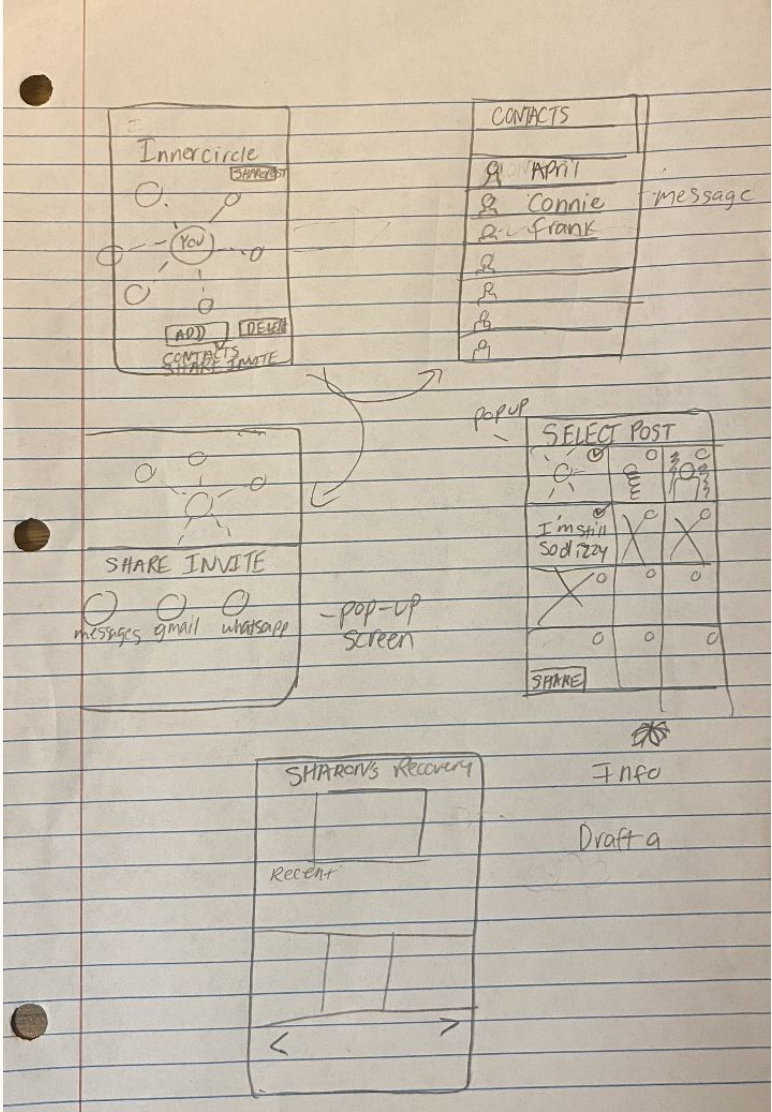 Innercircle
SHAREPOST
YOU
ADD
DELETE
CONTACTS
SHARE INVITE
CONTACTS
April
Connie
frank
message
SHARE INVITE
messages
gmail
whatsapp
-pop-up
screen
popup
SELECT POST
I'm still
So dizzy
SHARE
SHARON'S Recovery
Recent
Info
Draft a